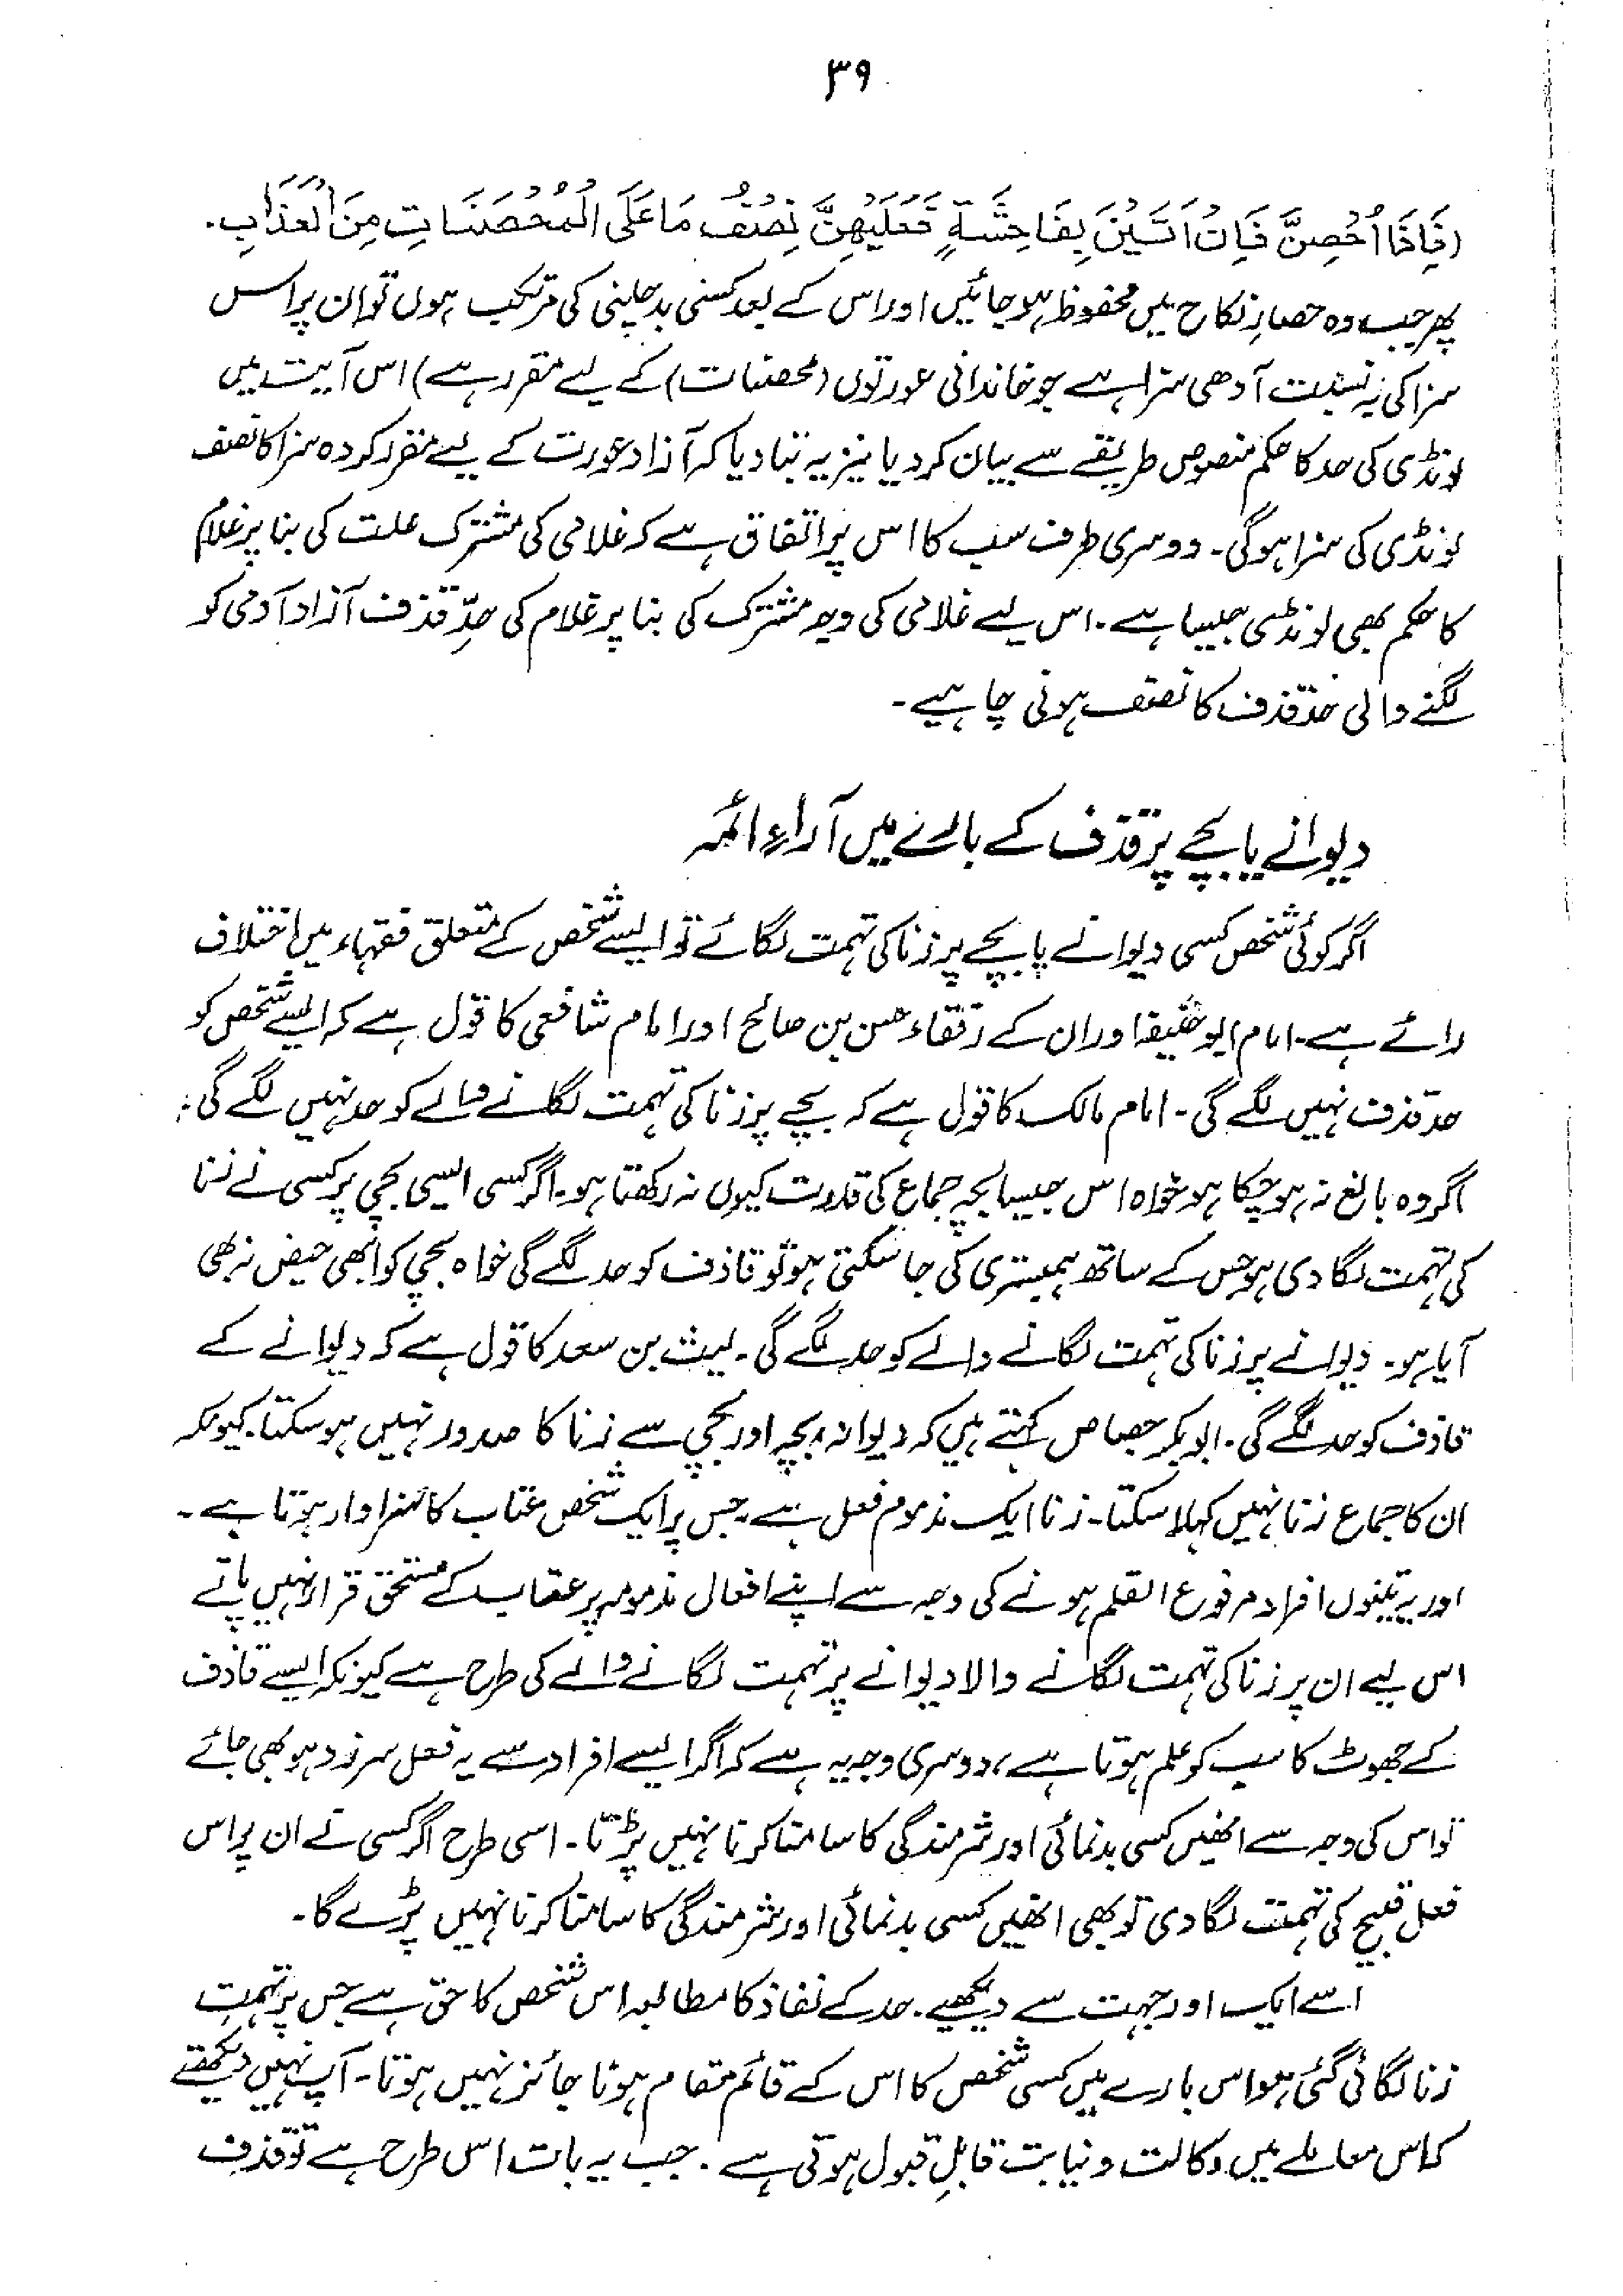 ۳۹
(فَإِذَا أُحْصِنَّ فَإِنْ أَتَيْنَ بِفَاحِشَةٍ فَعَلَيْهِنَّ نِصْفُ مَا عَلَى الْمُحْصَنَاتِ مِنَ الْعَذَابِ۔
پھر جب وہ حصارِ نکاح میں محفوظ ہو جائیں اور اس کے بعد کسی بدچلنی کی مرتکب ہوں تو ان پر اس
سزا کی بہ نسبت آدھی سزا ہے جو خاندانی عورتوں (محصنات) کے لیے مقرر ہے) اس آیت میں
لونڈی کی حد کا حکم منصوص طریقے سے بیان کر دیا نیز یہ بتا دیا کہ آزاد عورت کے لیے مقرر کردہ سزا کا نصف
لونڈی کی سزا ہوگی۔ دوسری طرف سب کا اس پر اتفاق ہے کہ غلامی کی مشترک علت کی بنا پر غلام
کا حکم بھی لونڈی جیسا ہے۔ اس لیے غلامی کی وجہ مشترک کی بنا پر غلام کی حدِّ قذف آزاد آدمی کو
لگنے والی حد قذف کا نصف ہونی چاہیے۔
دیوانے یا بچے پر قذف کے بارے میں آراءِ ائمہ
اگر کوئی شخص کسی دیوانے یا بچے پر زنا کی تہمت لگائے تو ایسے شخص کے متعلق فقہاء میں اختلاف
رائے ہے۔ امام ابو حنیفہ اور ان کے رفقاء حسن بن صالح اور امام شافعی کا قول ہے کہ ایسے شخص کو
حد قذف نہیں لگے گی۔ امام مالک کا قول ہے کہ بچے پر زنا کی تہمت لگانے والے کو حد نہیں لگے گی؛
اگر وہ بالغ نہ ہو چکا ہو خواہ اس جیسا بچہ جماع کی قدرت کیوں نہ رکھتا ہو۔ اگر کسی ایسی بچی پر کسی نے زنا
کی تہمت لگا دی ہو جس کے ساتھ ہمبستری کی جا سکتی ہو تو قاذف کو حد لگے گی خواہ بچی کو ابھی حیض نہ بھی
آیا ہو۔ دیوانے پر زنا کی تہمت لگانے والے کو حد لگے گی۔ لیث بن سعد کا قول ہے کہ دیوانے کے
قاذف کو حد لگے گی۔ ابوبکر جصاص کہتے ہیں کہ دیوانہ، بچہ اور بچی سے زنا کا صدور نہیں ہو سکتا۔ کیونکہ
ان کا جماع زنا نہیں کہلا سکتا۔ زنا ایک مذموم فعل ہے جس پر ایک شخص عقاب کا سزاوار ہوتا ہے۔
اور یہ تینوں افراد مرفوع القلم ہونے کی وجہ سے اپنے افعال مذمومہ پر عقاب کے مستحق قرار نہیں پاتے
اس لیے ان پر زنا کی تہمت لگانے والا دیوانے پر تہمت لگانے والے کی طرح ہے کیونکہ ایسے قاذف
کے جھوٹ کا سب کو علم ہوتا ہے، دوسری وجہ یہ ہے کہ اگر ایسے افراد سے یہ فعل سرزد ہو بھی جائے
تو اس کی وجہ سے انھیں کسی بدنمائی اور شرمندگی کا سامنا کرنا نہیں پڑتا۔ اسی طرح اگر کسی نے ان پر اس
فعل قبیح کی تہمت لگا دی تو بھی انھیں کسی بدنمائی اور شرمندگی کا سامنا کرنا نہیں پڑے گا۔
اسے ایک اور جہت سے دیکھیے۔ حد کے نفاذ کا مطالبہ اس شخص کا حق ہے جس پر تہمتِ
زنا لگائی گئی ہو اس بارے میں کسی شخص کا اس کے قائم مقام ہونا جائز نہیں ہوتا۔ آپ نہیں دیکھتے
کہ اس معاملے میں وکالت و نیابت قابلِ قبول ہوتی ہے۔ جب یہ بات اس طرح ہے تو قذف